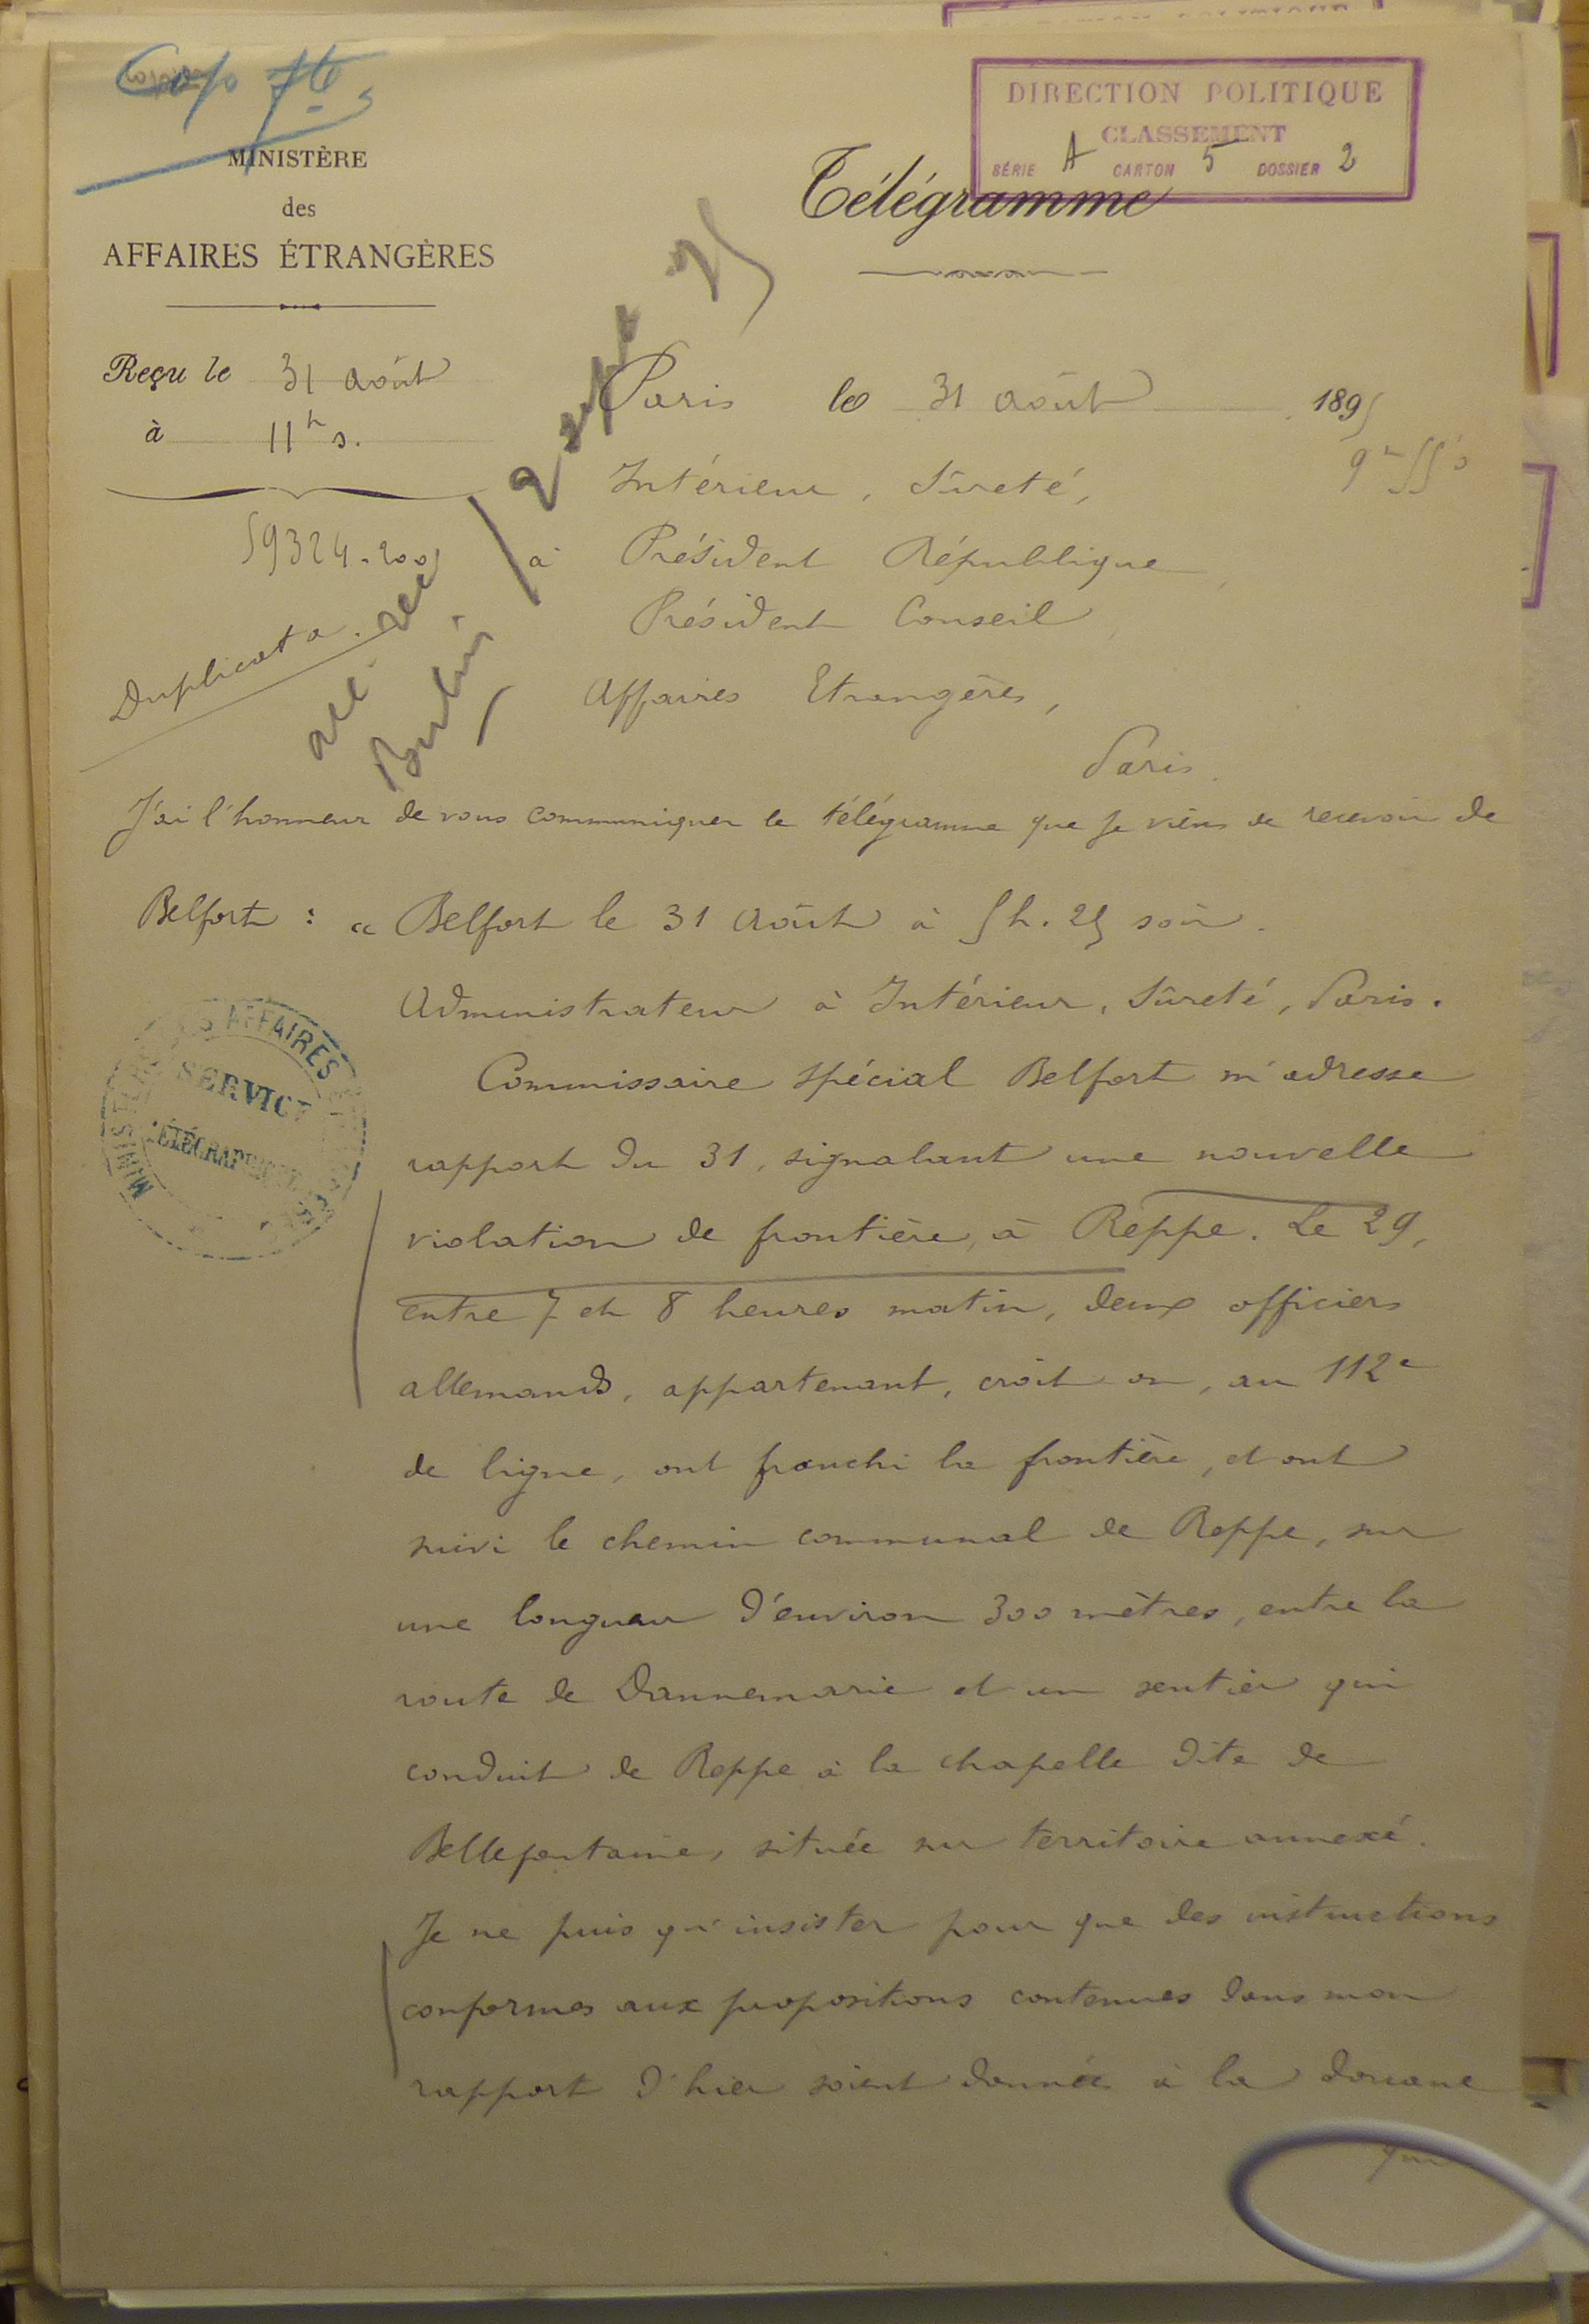 DIRECTION POLITIQUE
CLASSEMENT
SÉRIE A CARTON 5 DOSSIER 2
MINISTÈRE
des
AFFAIRES ÉTRANGÈRES
Télégramme
Reçu le 31 août
à 11h s.
59324.200
Duplicata.
Berlin
2 sept 95
Paris le 31 août 1895
9h 55 s
Intérieur, Sûreté,
à Président République,
Président Conseil,
Affaires Etrangères,
Paris.
J'ai l'honneur de vous communiquer le télégramme que je viens de recevoir de
Belfort : « Belfort le 31 août à 5h.25 soir.
Administrateur à Intérieur, Sûreté, Paris.
Commissaire spécial Belfort m'adresse
rapport du 31, signalant une nouvelle
violation de frontière, à Reppe. Le 29,
entre 7 et 8 heures matin, deux officiers
allemands, appartenant, croit on, au 112e
de ligne, ont franchi la frontière, et ont
suivi le chemin communal de Reppe, sur
une longueur d'environ 300 mètres, entre la
route de Dannemarie et un sentier qui
conduit de Reppe à la chapelle dite de
Bellefontaine, située sur territoire annexé.
Je ne puis qu'insister pour que des instructions
conformes aux propositions contenues dans mon
rapport d'hier soient données à la douane
qui
MINISTÈRE DES AFFAIRES ÉTRANGÈRES
SERVICE
TÉLÉGRAPHIQUE